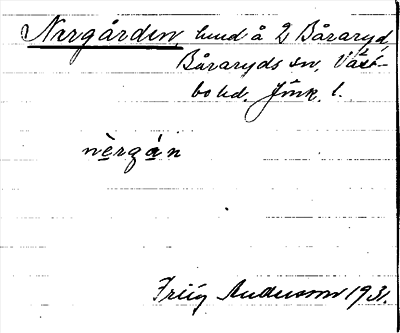 Nergården, hmd å 2 Båraryd,
Båraryds sn, Väst-
bo hd. Jönk. l.
nèrgán
Friiy Andersson 1931.